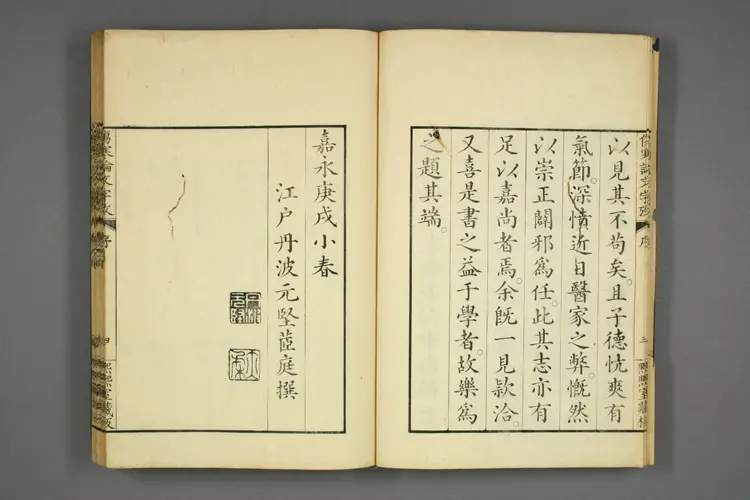 以見其不苟矣。且子德忼爽有
氣節。深憤近日醫家之弊。慨然
以崇正闢邪爲任。此其志亦有
足以嘉尚者焉。余旣一見欵洽。
又喜是書之益于學者。故樂爲
之題其端。
嘉永庚戌小春
江戶丹波元堅茝庭撰
傷寒論文字攷
序
四